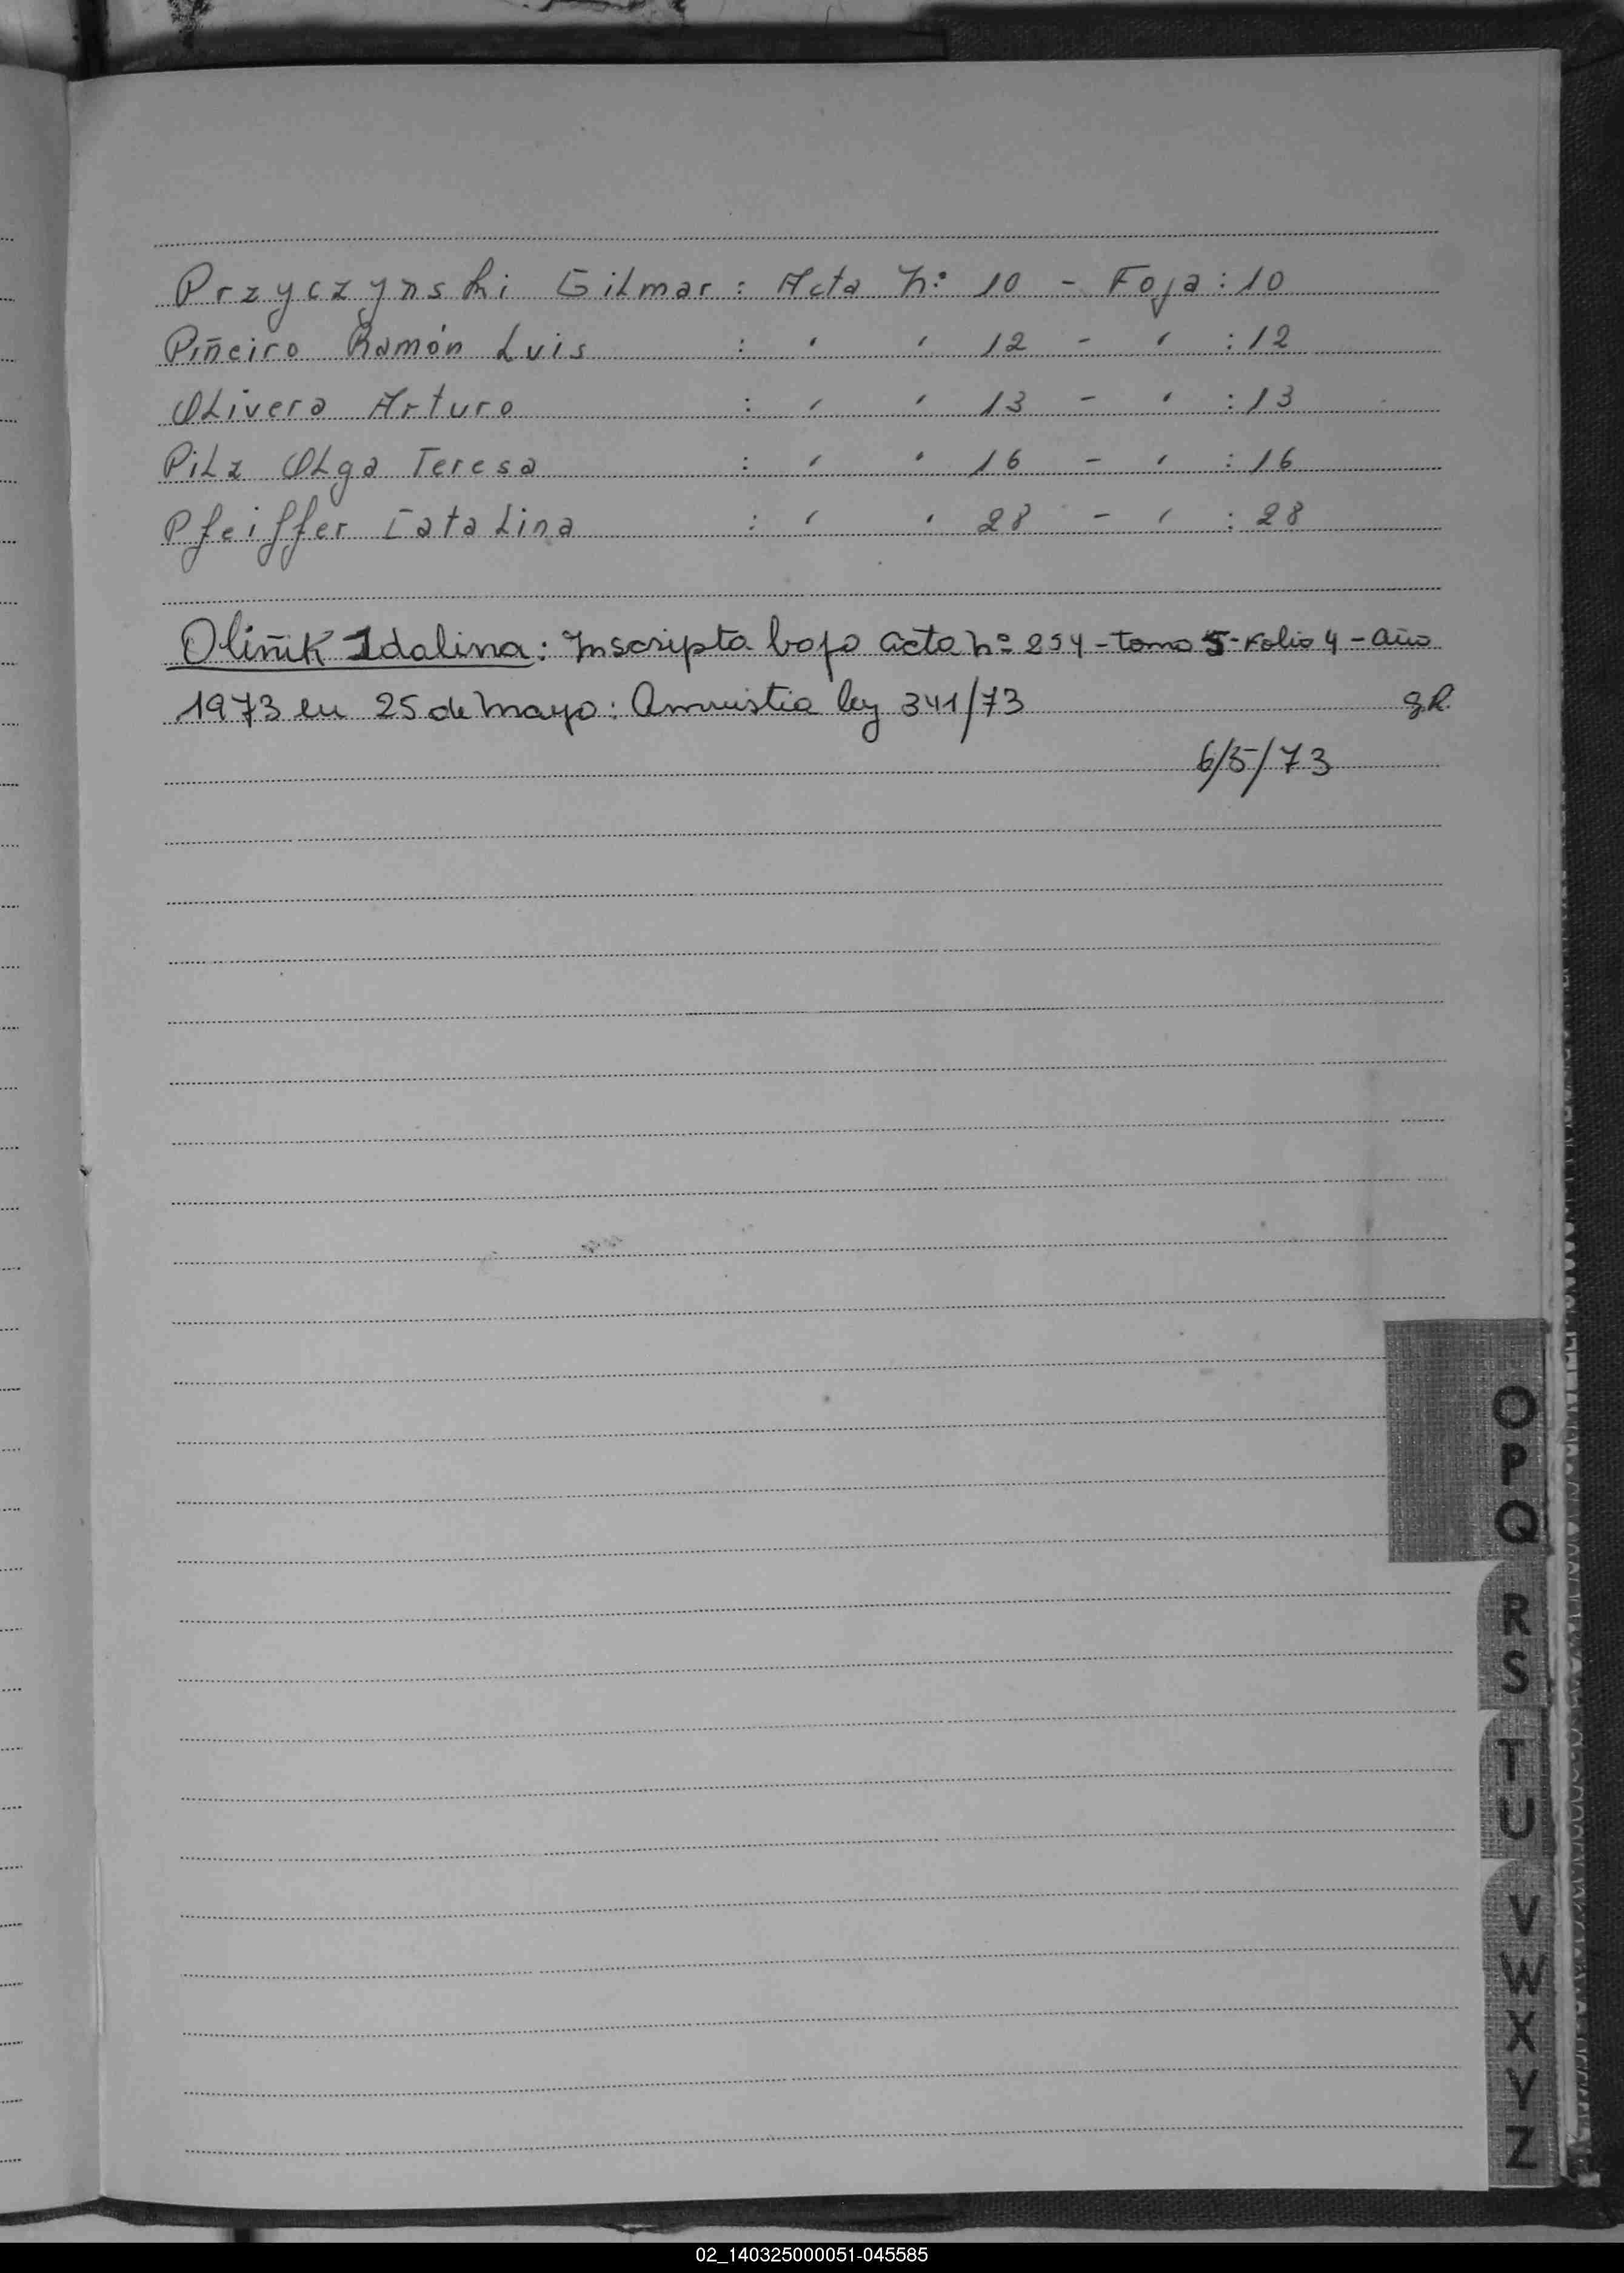 Przyczynski Gilmar : Acta n: 10 - Foja : 10
Piñeiro Ramón Luis : " " 12 - " : 12
Olivera Arturo : " " 13 - " : 13
Pilz Olga Teresa : " " 16 - " : 16
Pfeiffer Catalina : " " 28 - " : 28
Oliñik Idalina: Inscripta bajo acta nº 254 - tomo 5 - Folio 4 - año
1973 en 25 de mayo: Amnistia ley 341/73
6/5/73
O
P
Q
R
S
T
U
V
W
X
Y
Z
02_140325000051-045585